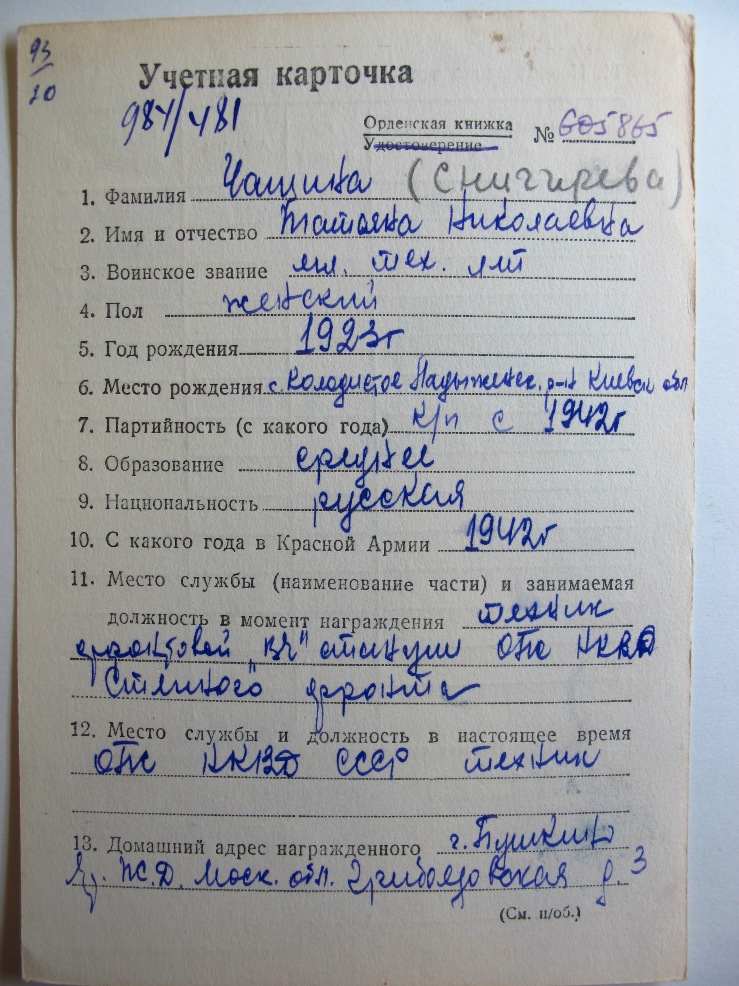 93
20
Учетная карточка
984/481
Орденская книжка
Удостоверение
№ 605865
1. Фамилия Чащина (Снигирева)
2. Имя и отчество Татьяна Николаевна
3. Воинское звание мл. тех. л-т
4. Пол женский
5. Год рождения 1923г
6. Место рождения с. Колодистое р-н Киевск обл
7. Партийность (с какого года) к/п с 1942г
8. Образование среднее
9. Национальность русская
10. С какого года в Красной Армии 1942г
11. Место службы (наименование части) и занимаемая
должность в момент награждения техник
фронтовой "ВЧ" станции ОПС НКВД
Степного фронта
12. Место службы и должность в настоящее время
ОПС НКВД СССР техник
13. Домашний адрес награжденного г. Пушкино
Яр. Ж.Д. Моск. обл. Грибоедовская д. 3
(См. н/об.)